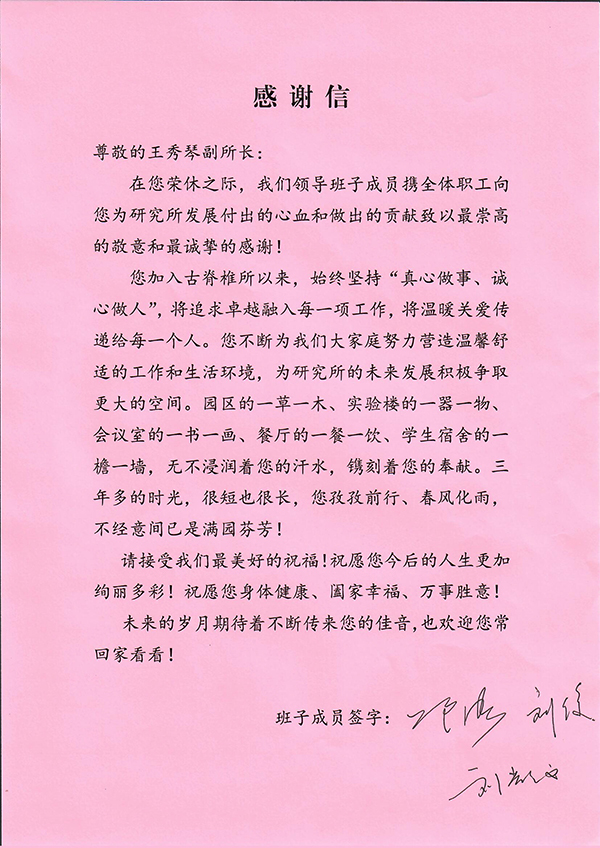 感谢信
尊敬的王秀琴副所长：
在您荣休之际，我们领导班子成员携全体职工向
您为研究所发展付出的心血和做出的贡献致以最崇高
的敬意和最诚挚的感谢！
您加入古脊椎所以来，始终坚持“真心做事、诚
心做人”，将追求卓越融入每一项工作，将温暖关爱传
递给每一个人。您不断为我们大家庭努力营造温馨舒
适的工作和生活环境，为研究所的未来发展积极争取
更大的空间。园区的一草一木、实验楼的一器一物、
会议室的一书一画、餐厅的一餐一饮、学生宿舍的一
檐一墙，无不浸润着您的汗水，镌刻着您的奉献。三
年多的时光，很短也很长，您孜孜前行、春风化雨，
不经意间已是满园芬芳！
请接受我们最美好的祝福！祝愿您今后的人生更加
绚丽多彩！祝愿您身体健康、阖家幸福、万事胜意！
未来的岁月期待着不断传来您的佳音，也欢迎您常
回家看看！
班子成员签字： 刘俊